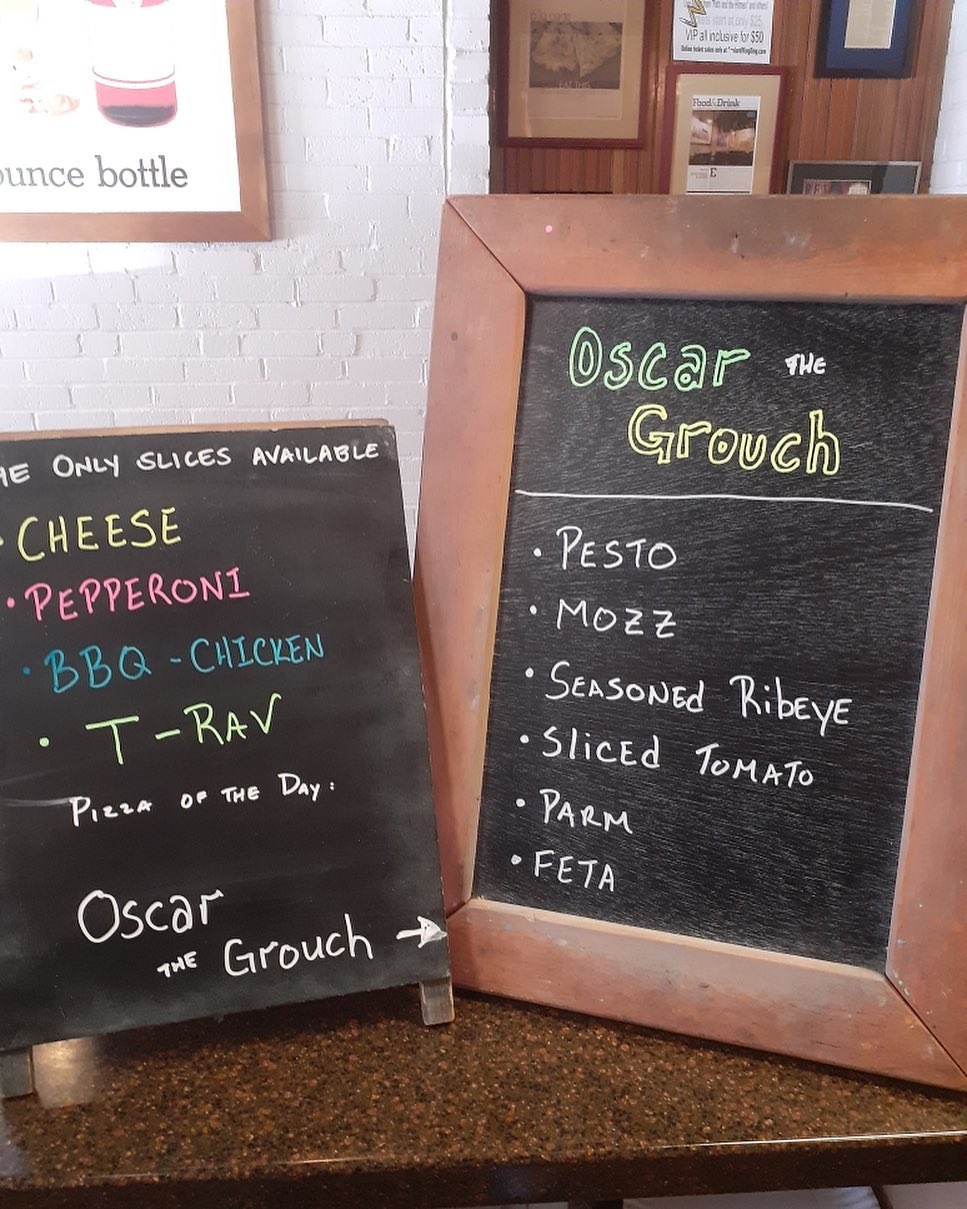 ounce bottle
VIP all inclusive for $50
Food&Drink
E
THE ONLY SLICES AVAILABLE
• CHEESE
• PEPPERONI
• BBQ - CHICKEN
• T-RAV
PIZZA OF THE DAY:
Oscar
THE Grouch →
Oscar THE
Grouch
• PESTO
• MOZZ
• SEASONEd RibEYE
• SlicEd TOMATO
• PARM
• FETA